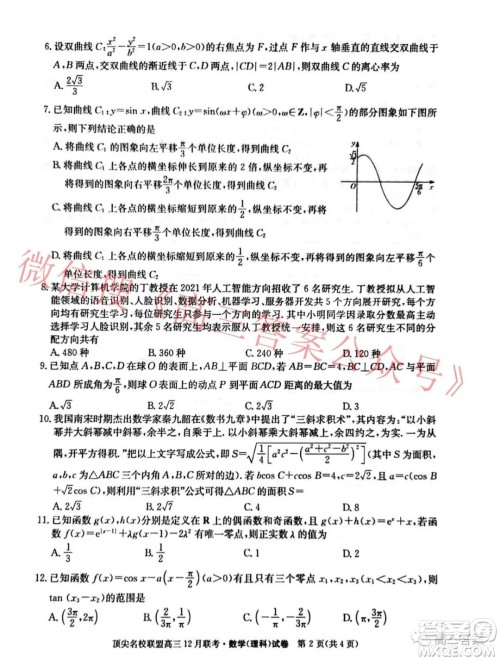 6. 设双曲线 C: x²/a² − y²/b² = 1(a>0,b>0) 的右焦点为 F, 过点 F 作与 x 轴垂直的直线交双曲线于
A,B 两点, 交双曲线的渐近线于 C,D 两点, |CD|=2|AB|, 则双曲线 C 的离心率为
A. 2√3/3 B. √3 C. 2 D. √5
7. 已知曲线 C₁: y=sin x, 曲线 C₂: y=sin(ωx+φ)(ω>0, ω∈Z, |φ|<π/2) 的部分图象如下图所
示, 则下列结论正确的是
A. 将曲线 C₁ 的图象向左平移 π/3 个单位长度, 得到曲线 C₂
B. 将曲线 C₁ 上各点的横坐标伸长到原来的 2 倍, 纵坐标不变, 再
将得到的图象向左平移 π/3 个单位长度, 得到曲线 C₂
C. 将曲线 C₁ 上各点的横坐标缩短到原来的 1/2, 纵坐标不变, 再将得到的图象向左平移 π/3
个单位长度, 得到曲线 C₂
D. 将曲线 C₁ 上各点的横坐标缩短到原来的 1/2, 纵坐标不变, 再将得到的图象向左平移 π/6
个单位长度, 得到曲线 C₂
8. 某大学计算机学院的丁教授在 2021 年人工智能方向招收了 6 名研究生. 丁教授拟从人工智
能领域的语音识别、人脸识别、数据分析、机器学习、服务器开发共 5 个方向展开研究, 每个方
向均有研究生学习, 每位研究生只参与一个方向的学习. 其中小明同学因录取分数最高主动
选择学习人脸识别, 其余 5 名研究生均表示服从丁教授统一安排, 则这 6 名研究生不同的分
配方向共有
A. 480 种 B. 360 种 C. 240 种 D. 120 种
BD 所成角为 π/6, 则球 O 的表面上的动点 P 到平面 ACD 距离的最大值为
A. √3 B. 2 C. 3 D. 2√2
10. 我国南宋时期杰出数学家秦九韶在《数书九章》中提出了“三斜求积术”, 其内容为: “以小斜
幂并大斜幂减中斜幂, 余半之, 自乘于上, 以小斜幂乘大斜幂减上, 余四约之, 为实; 一为从
隅, 开平方得积.”把以上文字写成公式, 即 S=√(1/4[a²c²−((a²+c²−b²)/2)²]) (其中 S 为面积,
a,b,c 为△ABC 三个内角 A,B,C 所对的边). 若 bcos C+ccos B=4, c=2√2, 且 a(cos B
+√2cos C)=b, 则利用“三斜求积”公式可得△ABC 的面积 S=
A. 2√3 B. 2√7 C. 4 D. 8
11. 已知函数 g(x),h(x) 分别是定义在 R 上的偶函数和奇函数, 且 g(x)+h(x)=eˣ+x, 若函数
f(x)=e^|x−1|+λg(x−1)−2λ² 有唯一零点, 则正实数 λ 的值为
A. 1/3 B. 1/2 C. 1 D. 2
tan (x₃−x₂) 的取值范围为
A. (3π/2, 2π) B. (3π/2, +∞) C. (π/2, +∞) D. (π/2, π)
顶尖名校联盟高三 12 月联考·数学(理科)试卷 第 2 页(共 4 页)